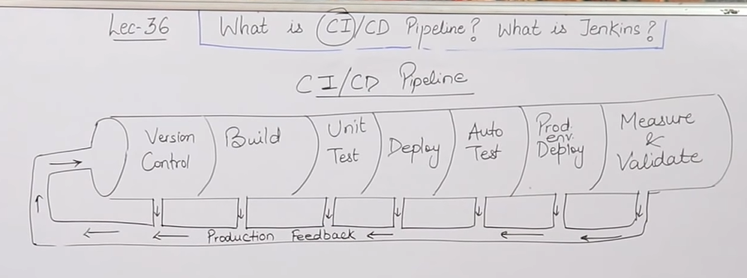 Lec-36
What is CI/CD Pipeline? What is Jenkins?
CI/CD Pipeline
Version
Control
Build
Unit
Test
Deploy
Auto
Test
Prod.
env.
Deploy
Measure
&
Validate
Production Feedback